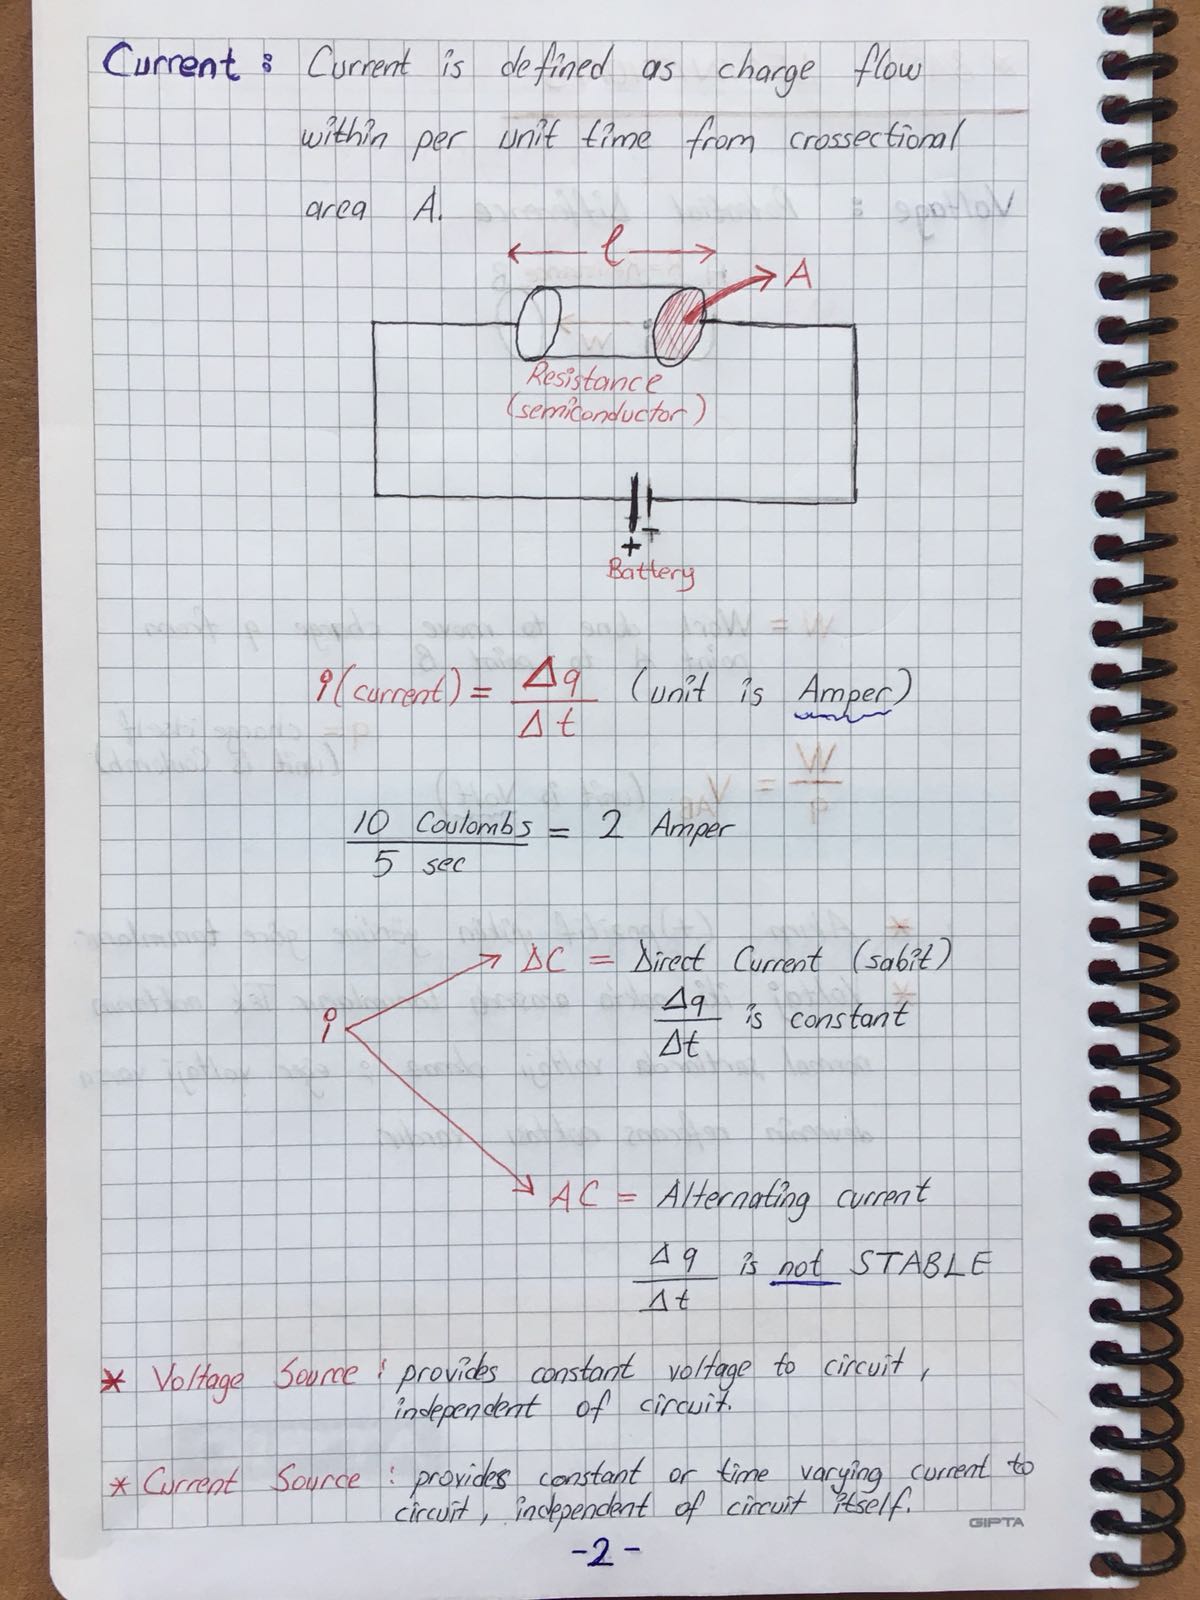 Current : Current is defined as charge flow
within per unit time from crossectional
area A.
l
A
Resistance
(semiconductor)
+ -
Battery
i (current) = Δq / Δt (unit is Amper)
10 Coulombs / 5 sec = 2 Amper
DC = Direct Current (sabit)
Δq / Δt is constant
i
AC = Alternating current
Δq / Δt is not STABLE
* Voltage Source : provides constant voltage to circuit,
independent of circuit.
* Current Source : provides constant or time varying current to
circuit, independent of circuit itself.
GIPTA
-2-